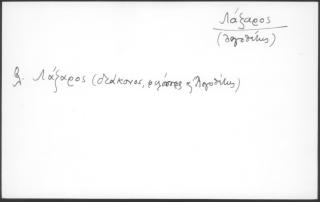 Λάζαρος
(λογοθέτης)
βλ. Λάζαρος (διάκονος, μελωδός ἢ Λογοθέτης)